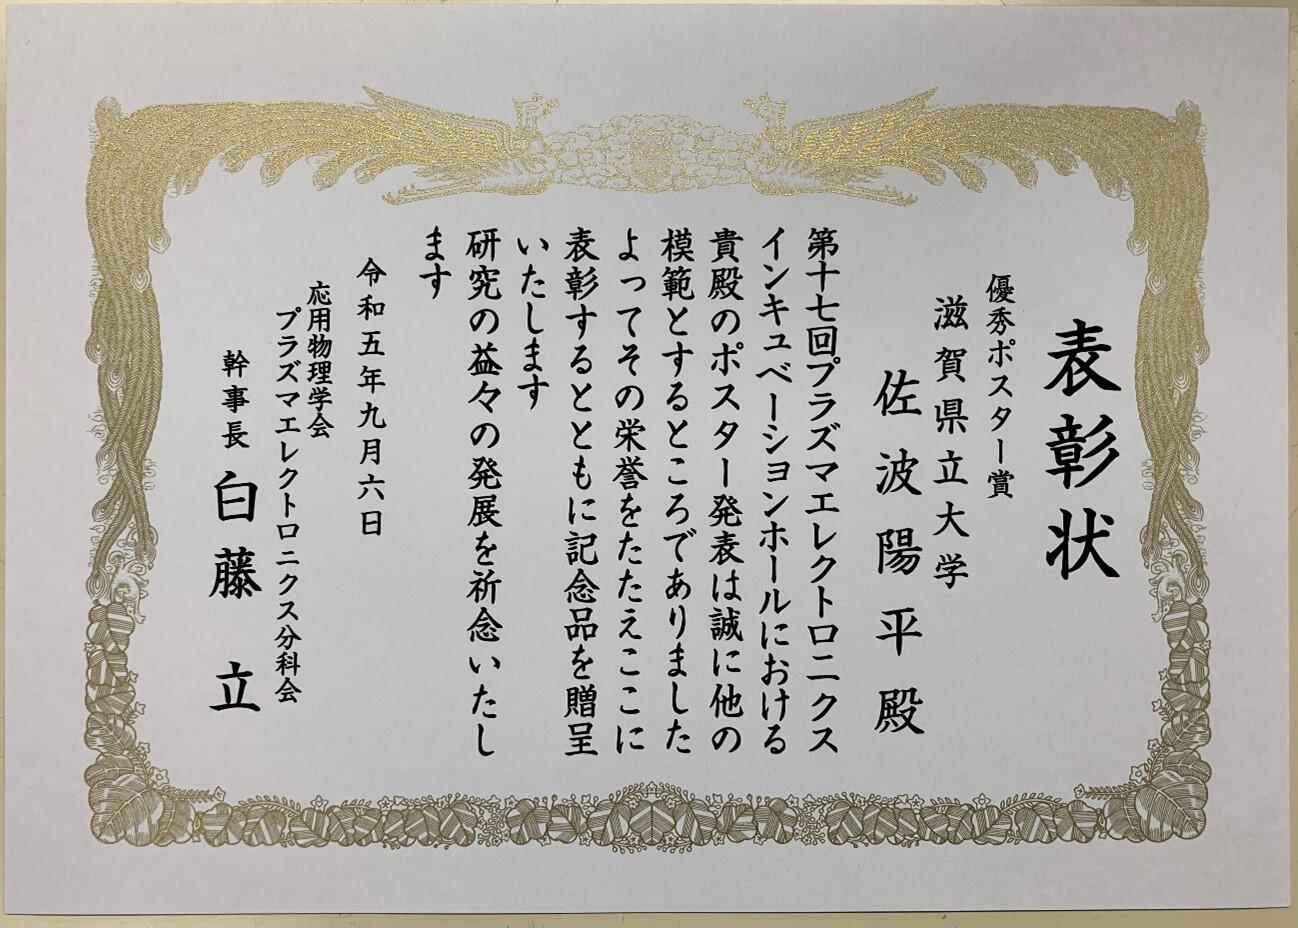 表彰状
優秀ポスター賞
滋賀県立大学
佐波陽平殿
第十七回プラズマエレクトロニクス
インキュベーションホールにおける
貴殿のポスター発表は誠に他の
模範とするところでありました
よってその栄誉をたたえここに
表彰するとともに記念品を贈呈
いたします
研究の益々の発展を祈念いたし
ます
令和五年九月六日
応用物理学会
プラズマエレクトロニクス分科会
幹事長 白藤 立